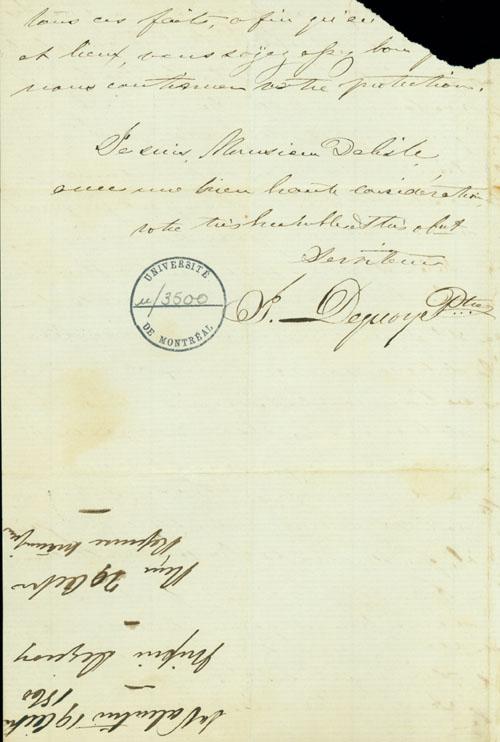 tous ces faits, afin qu'en
et lieux, vous soyez assez bon
nous continuer votre protection.
Je suis, Monsieur Delisle,
avec une bien haute considération
votre très humble et très obt
Serviteur
J. — Deguoy Ptre
UNIVERSITÉ
u/3500
DE MONTRÉAL
St Valentin 19 Octbre
1860
Deguoy
Reçu 29 Octbre
Réponse